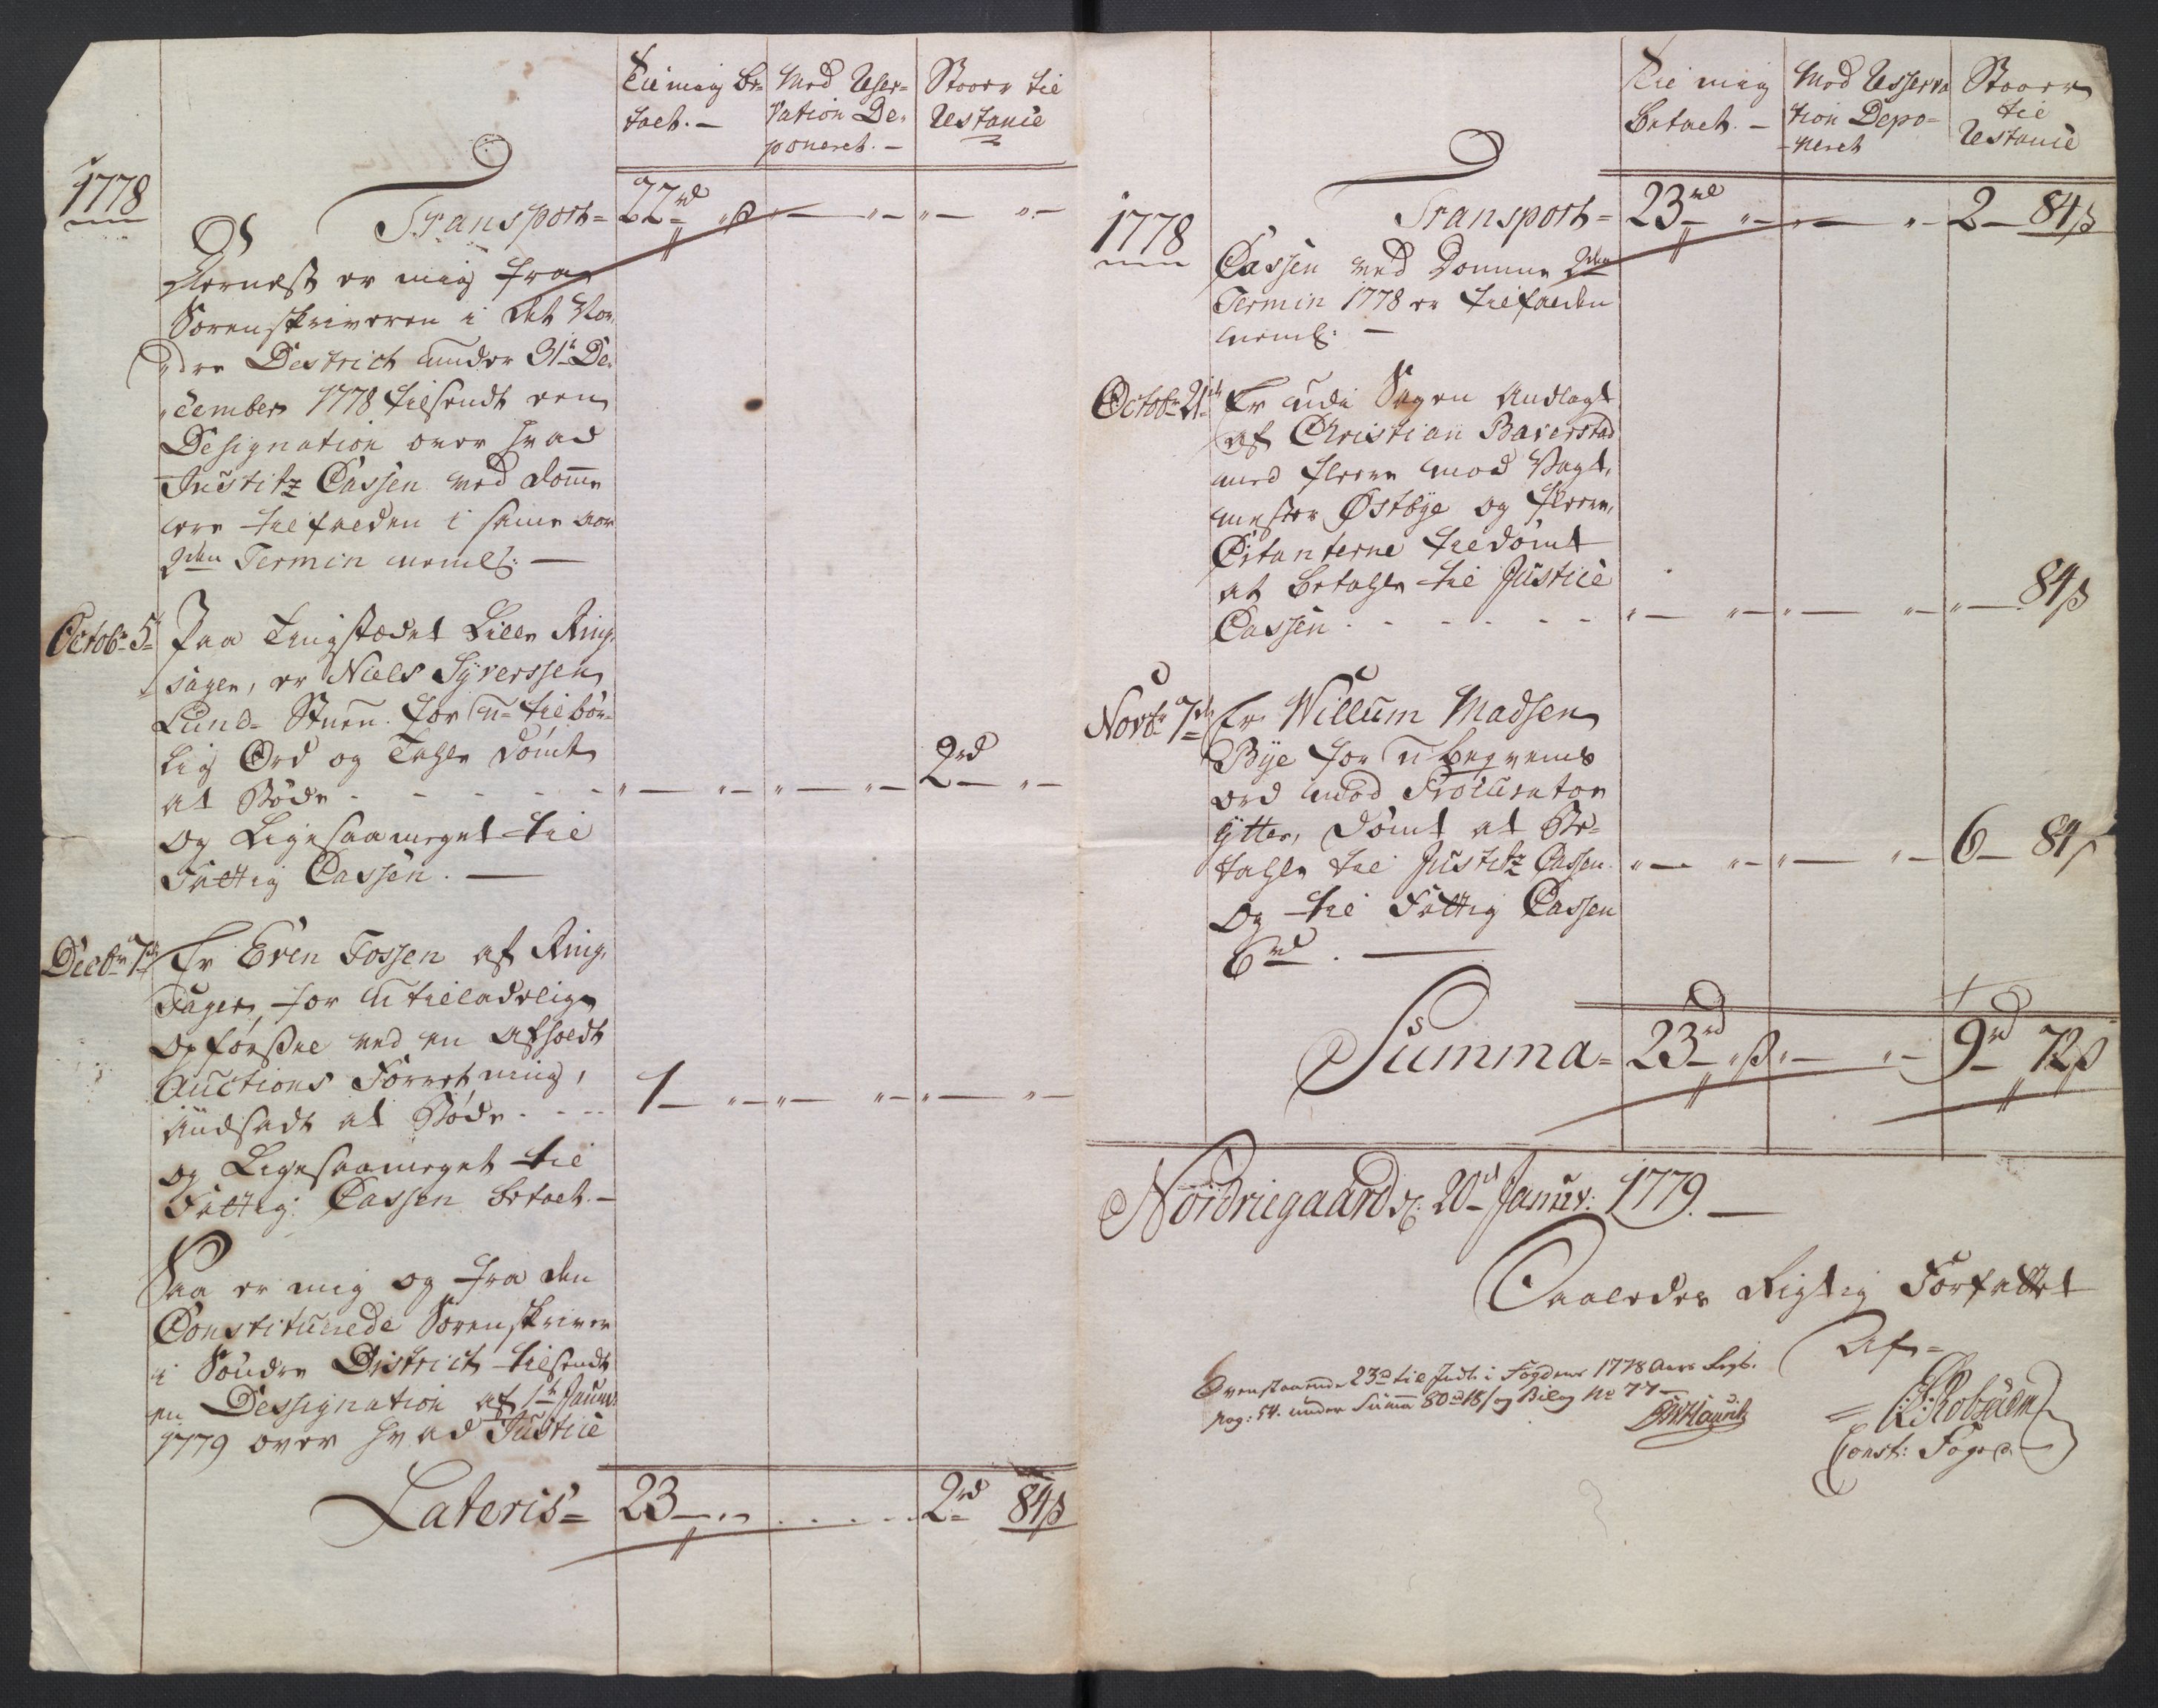 Til mig be-
talt. —
Mod Reser-
vation De-
poneret. —
Staaer til
Restance
1778
Transport = 22 rd „ ß „ — „ — „ — „ —
Dernest er mig fra
Sorenskriveren i det Nor-
dre Destrict under 31te De-
cember 1778 tilsendt een
Designation over hvad
Justitz Cassen ved Domme
ere tilfalden i samme aar
2den Termin nemlig: —
Octobr 5te Paa Tingstædet Lille Ring-
sager, er Niels Syverssen
Lund- Stuen for u-tilbør-
lig Ord og Tahle dømt
at Bøde - - - - - „ — „ — „ — „ — 2 rd — „ —
og Ligesaameget til
Fattig Cassen. —
Decbr 7de Er Even Fossen af Ring-
sager, for utilladelig
Opførsel ved en afholdt
Auctions Forretning,
Andsadt at Bøde - - - 1 — „ — „ — „ — „ — „ —
og Ligesaameget til
Fattig Cassen betalt. —
Saa er mig og fra den
Constituerede Sorenskriver
i Søndre District tilsendt
en Dessignation af 1te Januar
1779 over hvad Justice
Lateris = 23 — „ — . . . . . 2 rd 84 ß
Til mig
Betalt. —
Mod Resserva
tion Depo-
neret
Staaer
til
Restance
1778
Transport = 23 rd „ — „ — „ — 2 — 84 ß
Cassen ved Domme 2den
Termin 1778 er tilfalden
nemlig: —
Octobr 21de Er udi Sagen Andlagt
af Christian Baverstad
med fleere mod Vagt-
mester Østbye og fleere,
Citanterne tildømt
at betahle til Justice
Cassen - - - - - - „ — „ — „ — „ — „ — 84 ß
Novbr 7de Er Willum Madsen
Bye for ubeqvems
ord imod Procurator
Ytter, dømt at Be-
tahle til Justitz Cassen. „ — „ — „ — „ — 6 — 84 ß
Og til Fattig Cassen
6 rd. —
Summa = 23 rd „ ß „ — „ — 9 rd 72 ß
Nordriegaard d: 20de Januar: 1779. —
Saaledes Rigtig Forfattet
Af =
Ovenstaaende 23 rd til Indt: i Fogdens 1778 Aars Regb.
pag: 54. under Summa 80 rd 18 ß og Bilag No 77 —
Const: Foged.